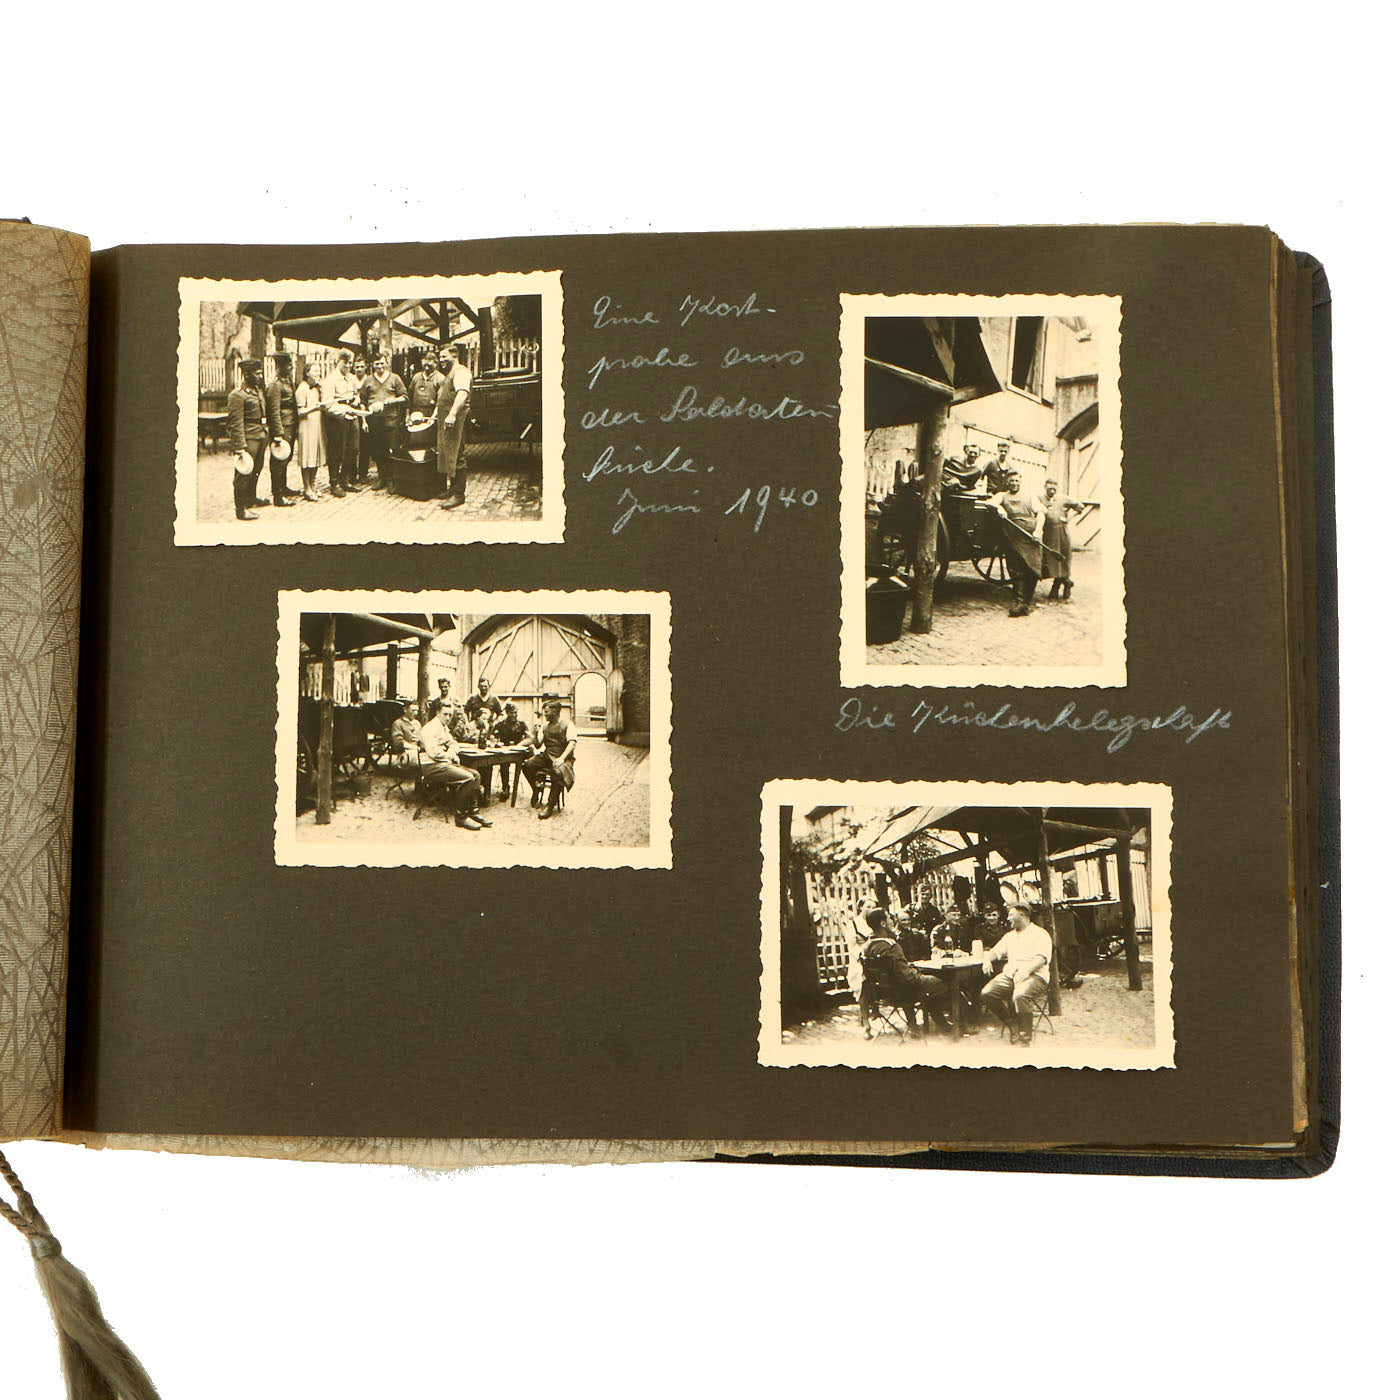 Eine Kost-
probe aus
der Soldaten
küche.
Juni 1940
Die Küchenbelegschaft